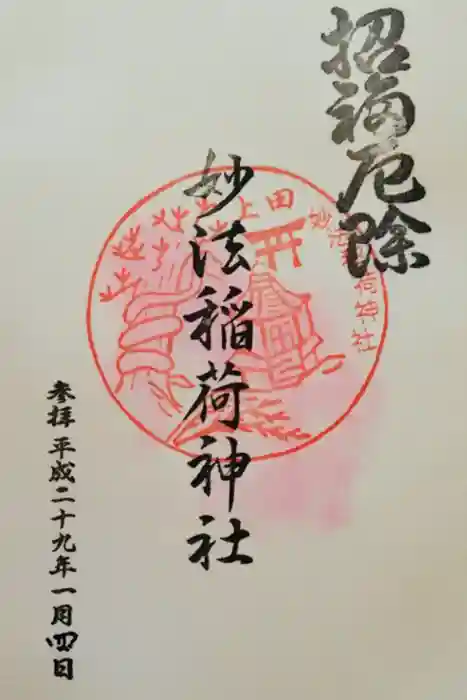 招福厄除
上田
妙法稲荷神社
妙法稲荷神社
参拝 平成二十九年一月四日